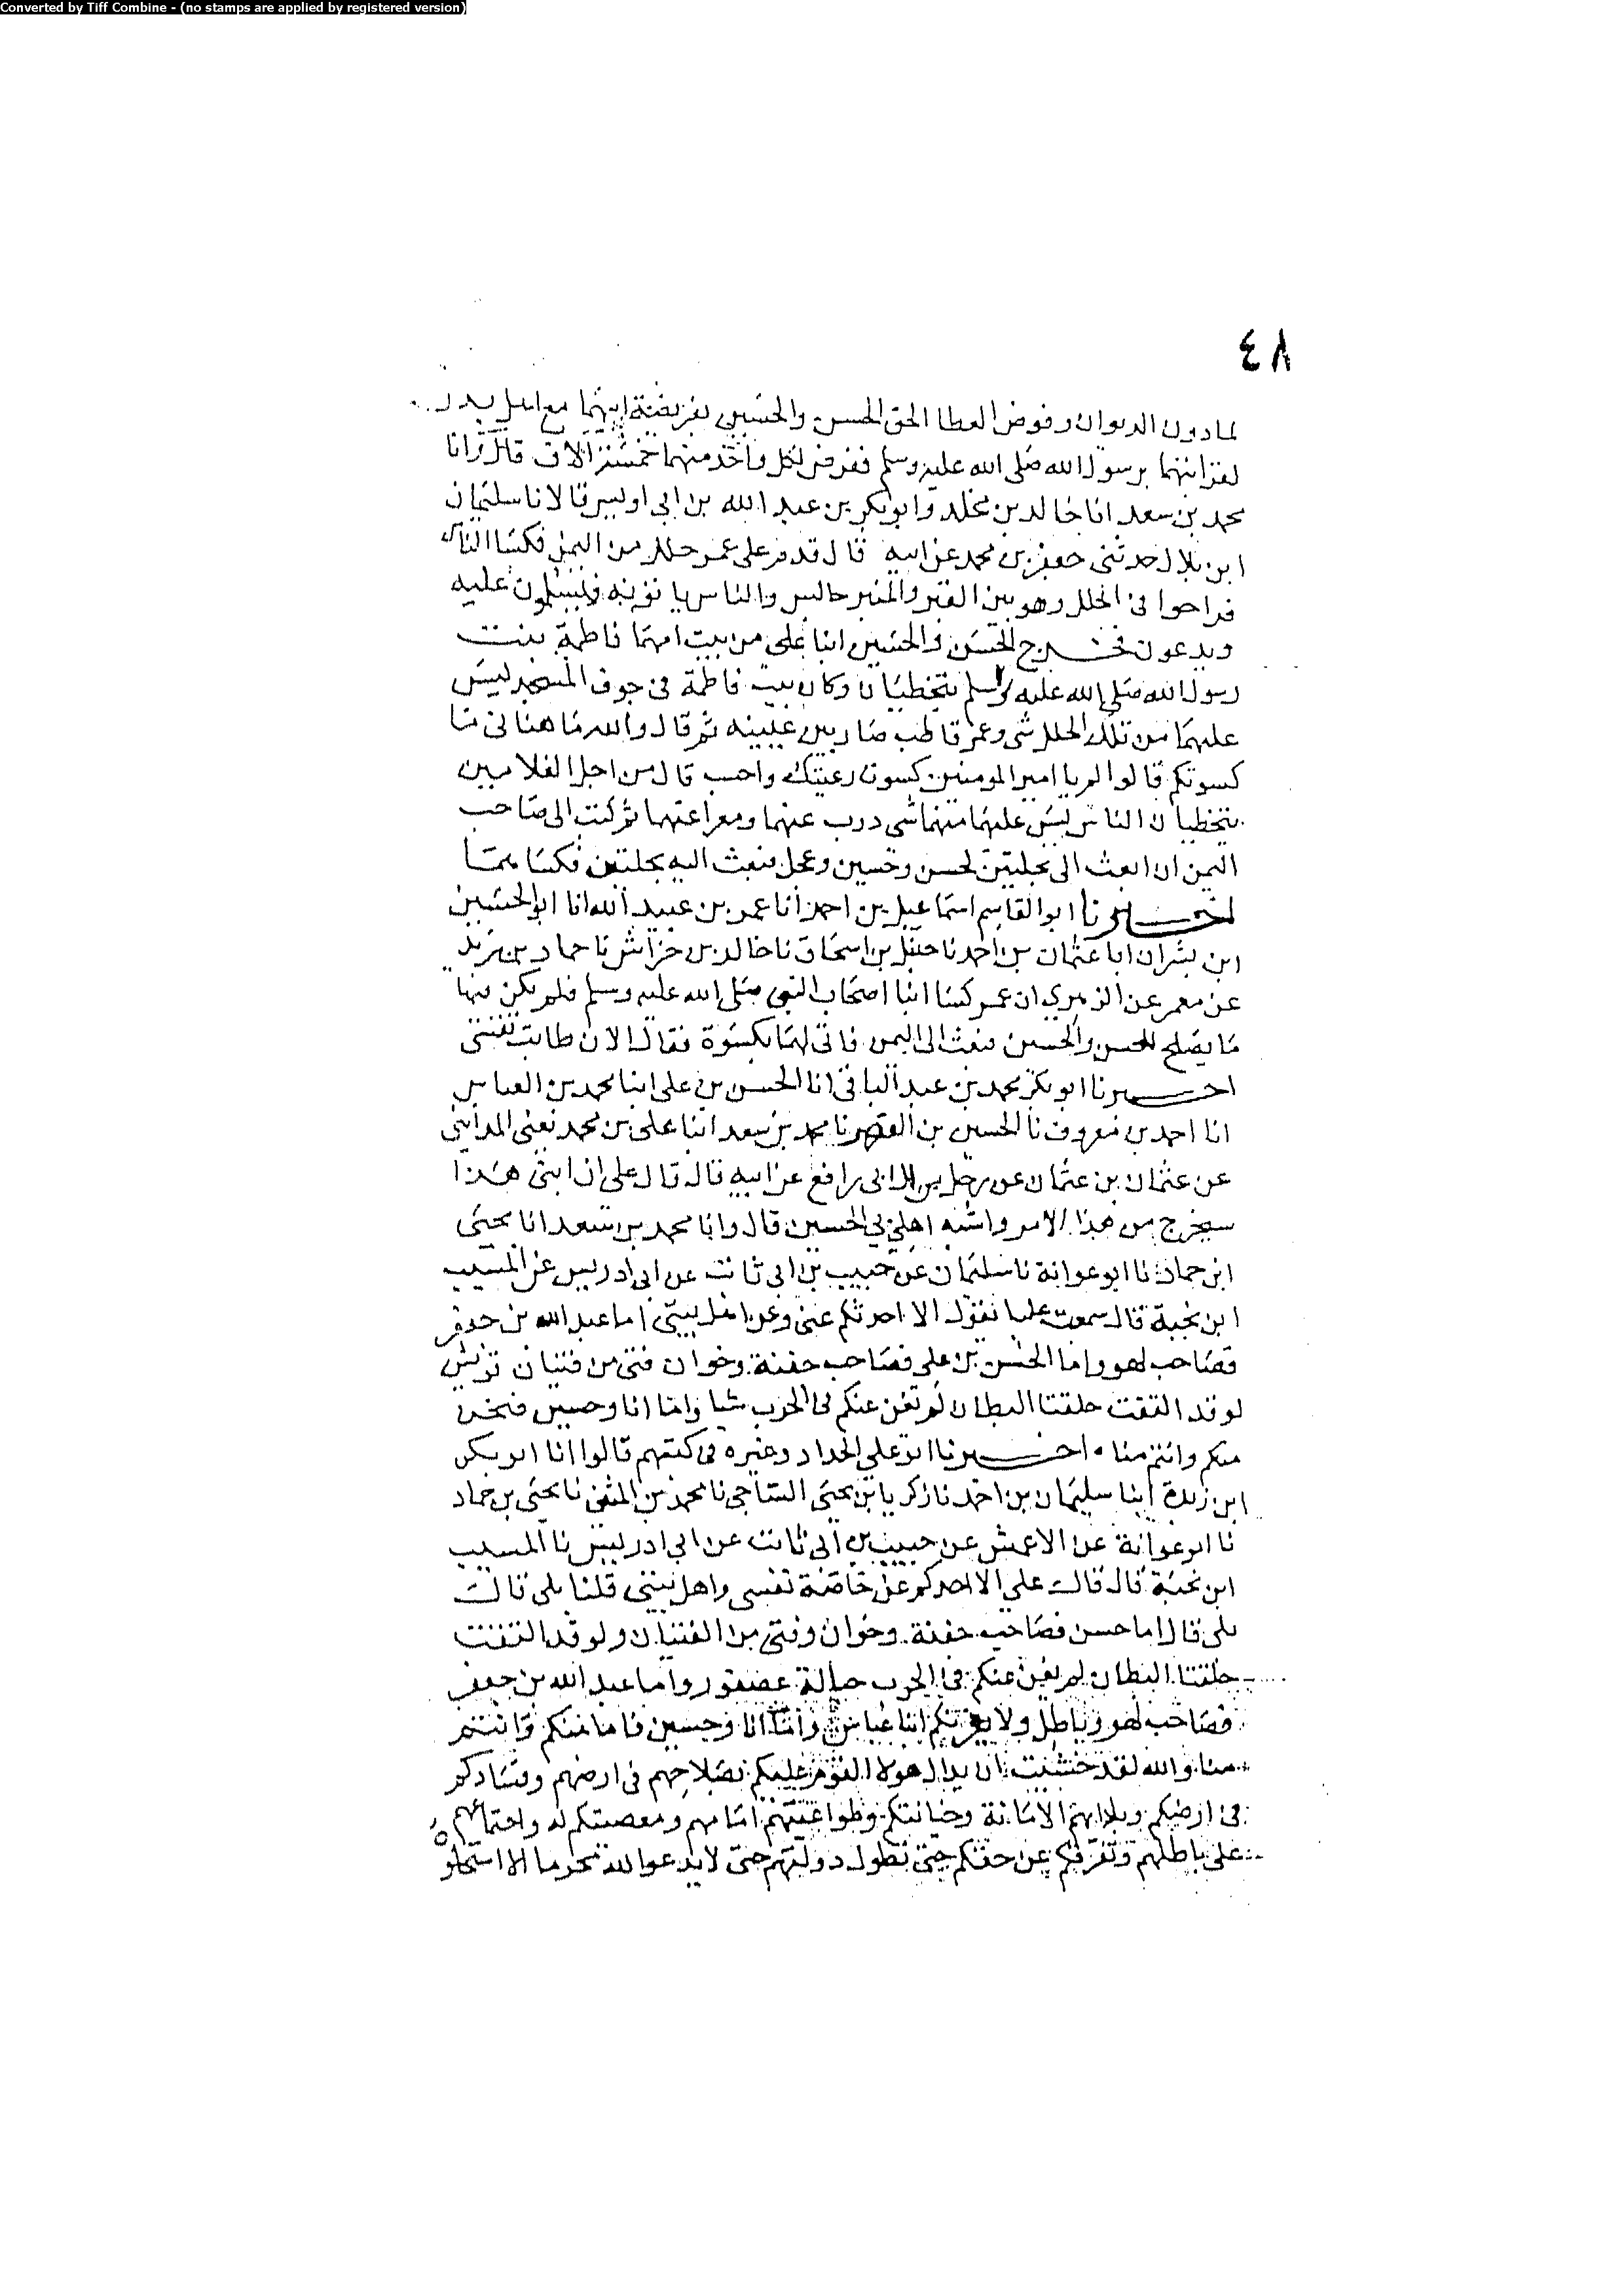 Converted by Tiff Combine - (no stamps are applied by registered version)
٤٨
لما دون الديوان وفرض العطا الحق الحسن والحسين بفريضة ابيهما مع اهل بدر
لقرابتهما برسول الله صلى الله عليه وسلم ففرض لكل واحد منهما خمسة آلاف قال وانا
محمد بن سعد انا خالد بن مخلد وابو بكر بن عبد الله بن ابي اويس قالا نا سليمان
ابن بلال حدثني جعفر بن محمد عن ابيه قال قدم على عمر حلل من اليمن فكسا الناس
فراحوا في الحلل وهو بين القبر والمنبر جالس والناس يأتونه فيسلمون عليه
ويدعون فخرج الحسن والحسين ابنا علي من بيت امهما فاطمة بنت
رسول الله صلى الله عليه وسلم يتخطيان وكان بيت فاطمة في جوف المسجد ليس
عليهما من تلك الحلل شي وعمر قاطب صار بين عينيه ثم قال والله ما هناني ما
كسوتكم قالوا لم يا امير المومنين كسوت رعيتك واحسنت قال من اجل الغلامين
يتخطيان الناس ليس عليهما منها شي كبرت عنهما وصغرا عنها ثم كتب الى صاحب
اليمن ان ابعث الي بحلتين لحسن وحسين وعجل فبعث اليه بحلتين فكساهما
اخبرنا ابو القاسم اسماعيل بن احمد انا عمر بن عبيد الله انا ابو الحسين
ابن بشران انا عثمان بن احمد نا حنبل بن اسحاق نا خالد بن خراش نا حماد بن زيد
عن معمر عن الزهري ان عمر كسا ابنا اصحاب النبي صلى الله عليه وسلم فلم يكن فيها
ما يصلح للحسن والحسين فبعث الى اليمن فاتى لهما بكسوة فقال الان طابت نفسي
اخبرنا ابو بكر محمد بن عبد الباقي انا الحسن بن علي انبا محمد بن العباس
انا احمد بن معروف نا الحسين بن الفهم نا محمد بن سعد انبا علي بن محمد يعني المدايني
عن عثمان بن عثمان عن رجل من ال ابي رافع عن ابيه قال قال علي ان ابني هذا
سيخرج من هذا الامر واشبه اهلي بي الحسين قال وانا محمد بن سعد انا يحيى
ابن حماد نا ابو عوانة نا سليمان عن حبيب بن ابي ثابت عن ابي ادريس عن المسيب
ابن نجبة قال سمعت عليا يقول الا احدثكم عني وعن اهل بيتي اما عبد الله بن جعفر
فصاحب لهو واما الحسن بن علي فصاحب جفنة وخوان فتى من فتيان قريش
لو قد التقت حلقتا البطان لم تغن عنكم في الحرب شيا واما انا وحسين فنحن
منكم وانتم منا • اخبرنا ابو علي الحداد وغيره في كتبهم قالوا انا ابو بكر
ابن ريذة انبا سليمان بن احمد نا زكريا بن يحيى الساجي نا محمد بن المثنى نا يحيى بن حماد
نا ابو عوانة عن الاعمش عن حبيب بن ابي ثابت عن ابي ادريس نا المسيب
ابن نجبة قال قال علي الا احدثكم عن خاصة نفسي واهل بيتي قلنا بلى قال
بلى قال اما حسن فصاحب جفنة وخوان وفتى من الفتيان ولو قد التقت
حلقتا البطان لم يغن عنكم في الحرب حبالة عصفور واما عبد الله بن جعفر
فصاحب لهو وباطل ولا يغرنكم ابنا عباس واما انا وحسين فانا منكم وانتم
منا والله لقد خشيت ان يدال هولا القوم عليكم بصلاحهم في ارضهم وفسادكم
في ارضكم وبادايهم الامانة وخيانتكم وطواعيتهم امامهم ومعصيتكم له واجتماعهم
على باطلهم وتفرقكم عن حقكم حتى تطول دولتهم حتى لا يدعوا لله محرما الا استحلوه